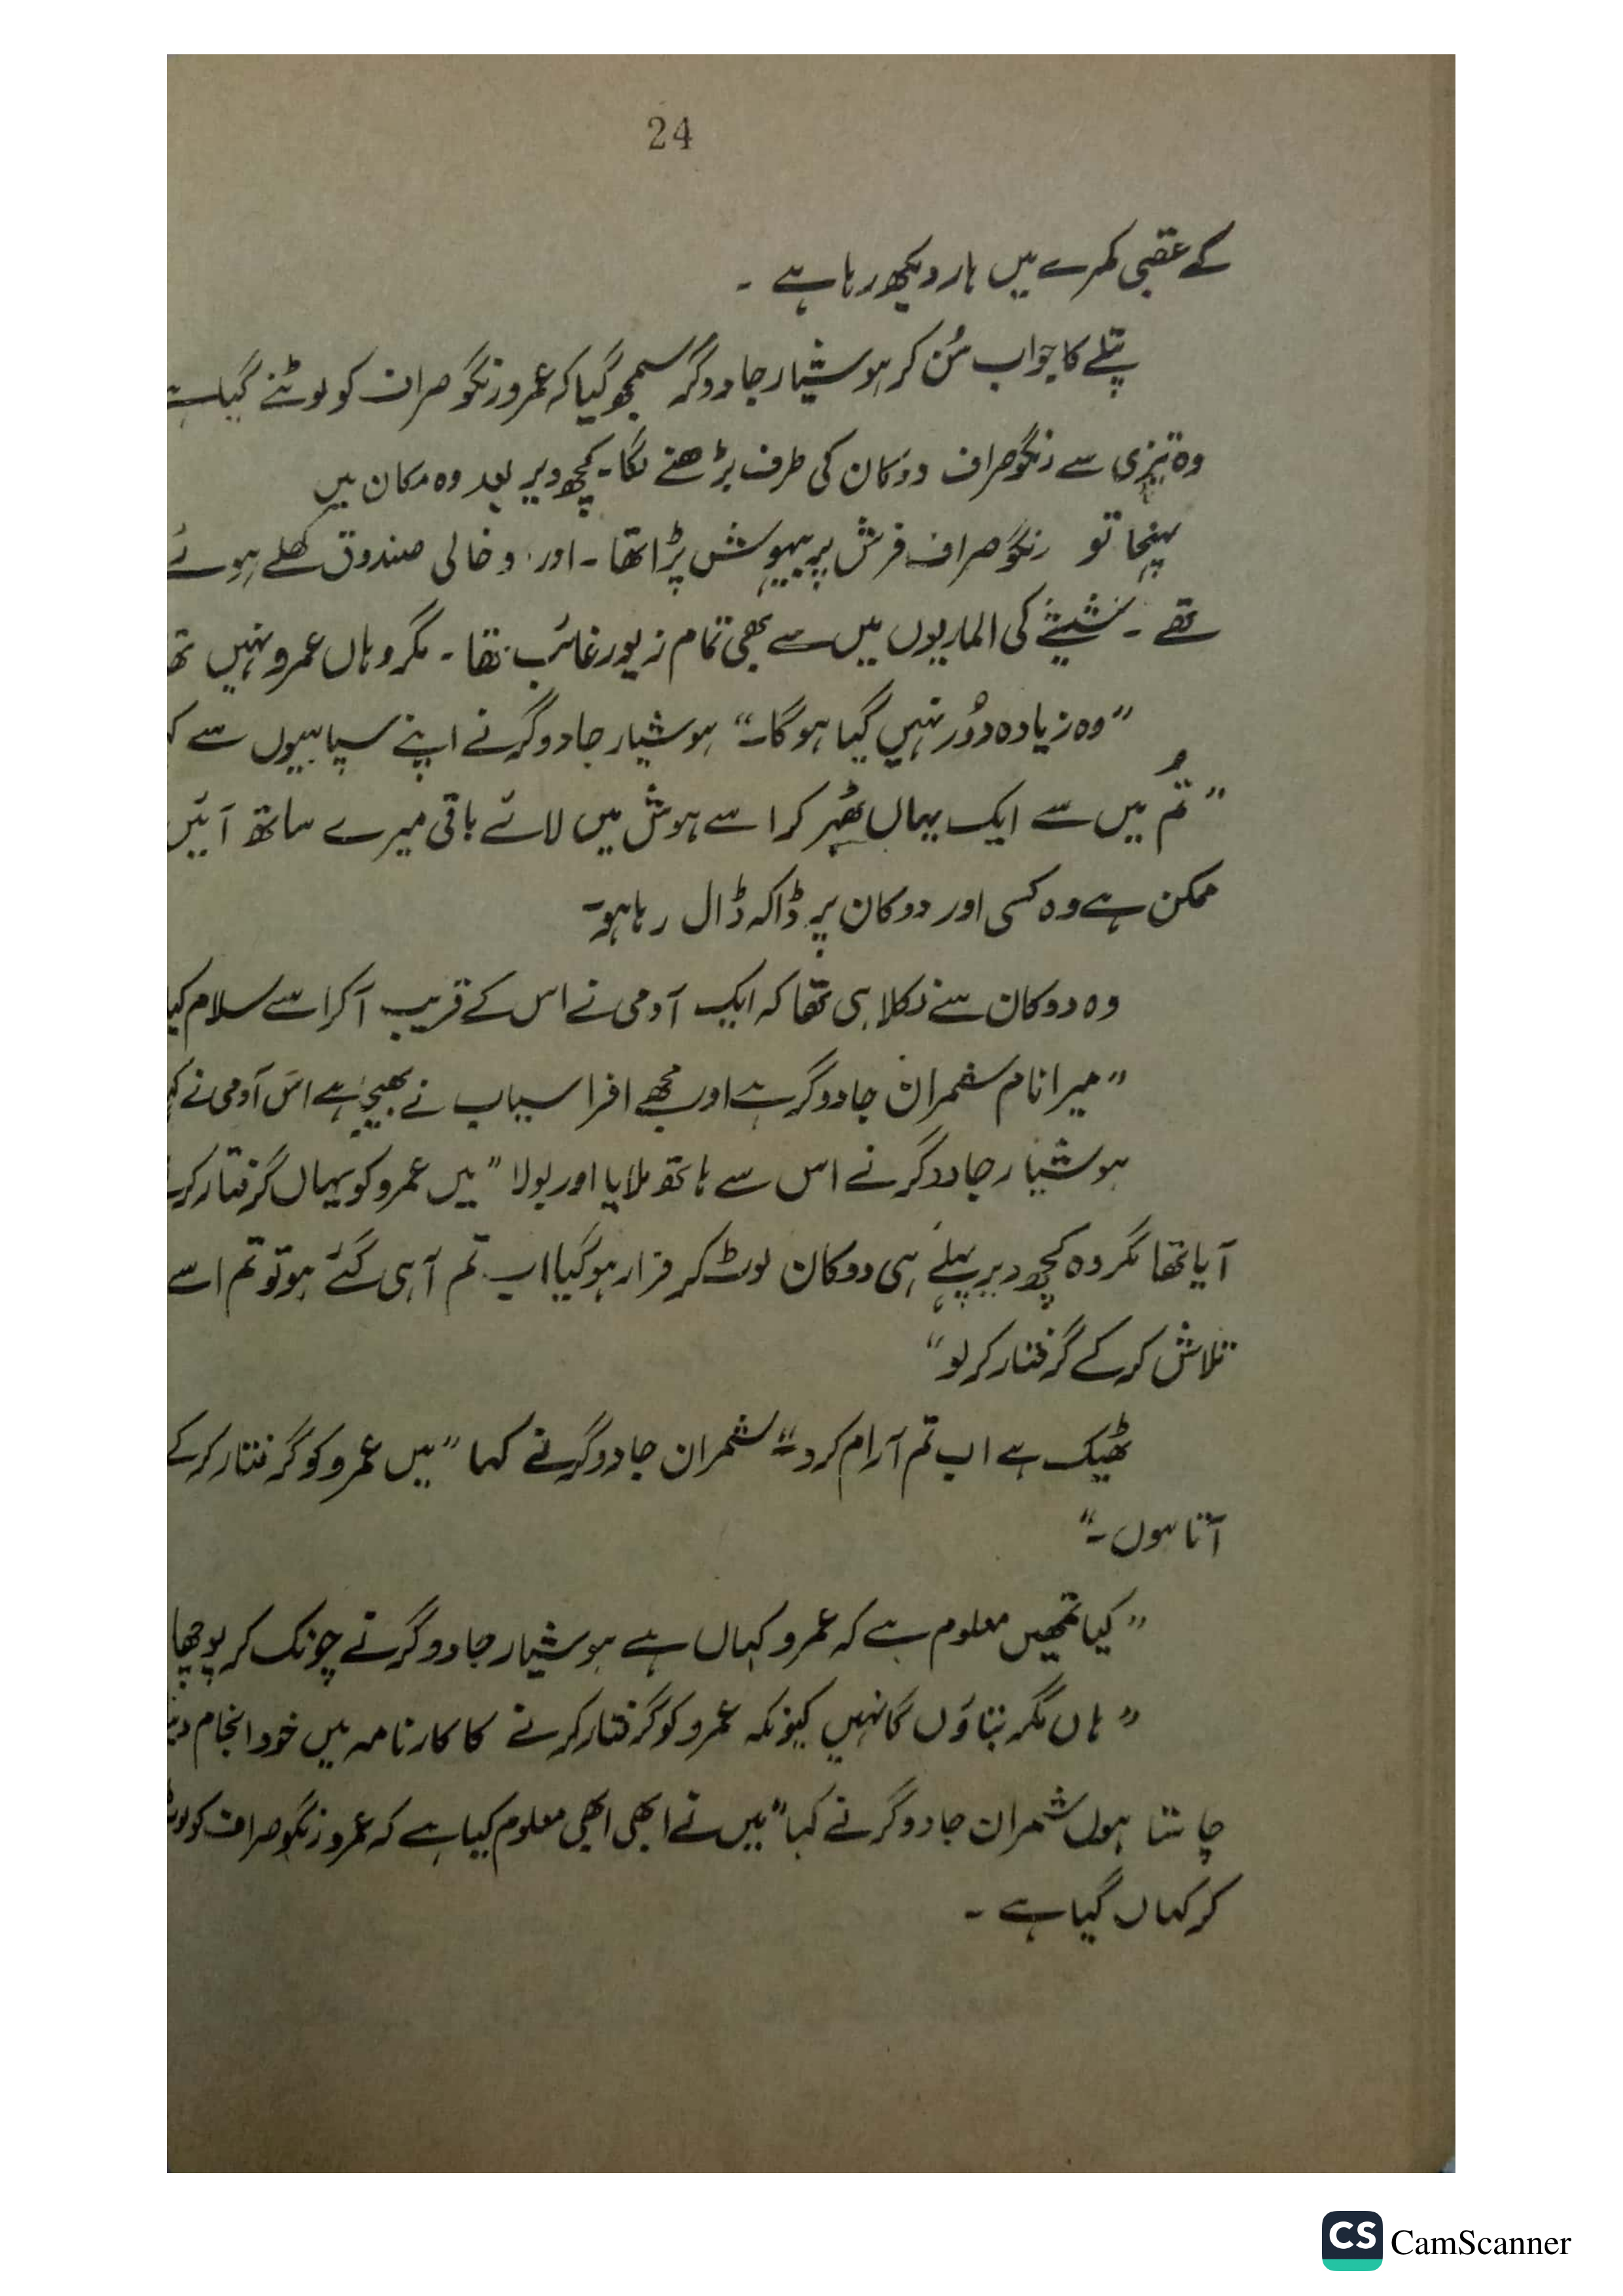 24
کے عقبی کمرے میں ہار دیکھ رہا ہے ۔
پتلے کا جواب سُن کر ہوشیار جادوگر سمجھ گیا کہ عمرو زنگو صراف کو لوٹنے گیا ہے
وہ تیزی سے زنگو صراف دوکان کی طرف بڑھنے لگا۔ کچھ دیر بعد وہ مکان میں
پہنچا تو زنگو صراف فرش پر بیہوش پڑا تھا ۔ اور و خالی صندوق کھلے ہوئے
تھے ۔ شیشے کی الماریوں میں سے بھی تمام زیور غائب تھا ۔ مگر وہاں عمرو نہیں
”وہ زیادہ دُور نہیں گیا ہوگا۔“ ہوشیار جادوگر نے اپنے سپاہیوں سے
”تُم میں سے ایک یہاں ٹھہر کر اسے ہوش میں لائے باقی میرے ساتھ آئیں
ممکن ہے وہ کسی اور دوکان پر ڈاکہ ڈال رہا ہو۔
وہ دوکان سے نکلا ہی تھا کہ ایک آدمی نے اس کے قریب آکر اسے سلام کیا
”میرا نام شمران جادوگر ہے اور مجھے افراسیاب نے بھیجا ہے اس آدمی نے
ہوشیار جادوگر نے اس سے ہاتھ ملایا اور بولا ”میں عمرو کو یہاں گرفتار
آیا تھا مگر وہ کچھ دیر پہلے ہی دوکان لوٹ کر فرار ہو گیا اب تم آ ہی گئے ہو تو تم اسے
تلاش کر کے گرفتار کر لو“
ٹھیک ہے اب تم آرام کرو۔“ شمران جادوگر نے کہا ”میں عمرو کو گرفتار کر کے
آتا ہوں ۔“
”کیا تمھیں معلوم ہے کہ عمرو کہاں ہے ہوشیار جادوگر نے چونک کر پوچھا
”ہاں مگر بتاؤں گا نہیں کیونکہ عمرو کو گرفتار کرنے کا کارنامہ میں خود انجام
چاہتا ہوں شمران جادوگر نے کہا ”میں نے ابھی ابھی معلوم کیا ہے کہ عمرو زنگو صراف کو
کر کہاں گیا ہے ۔
CS CamScanner